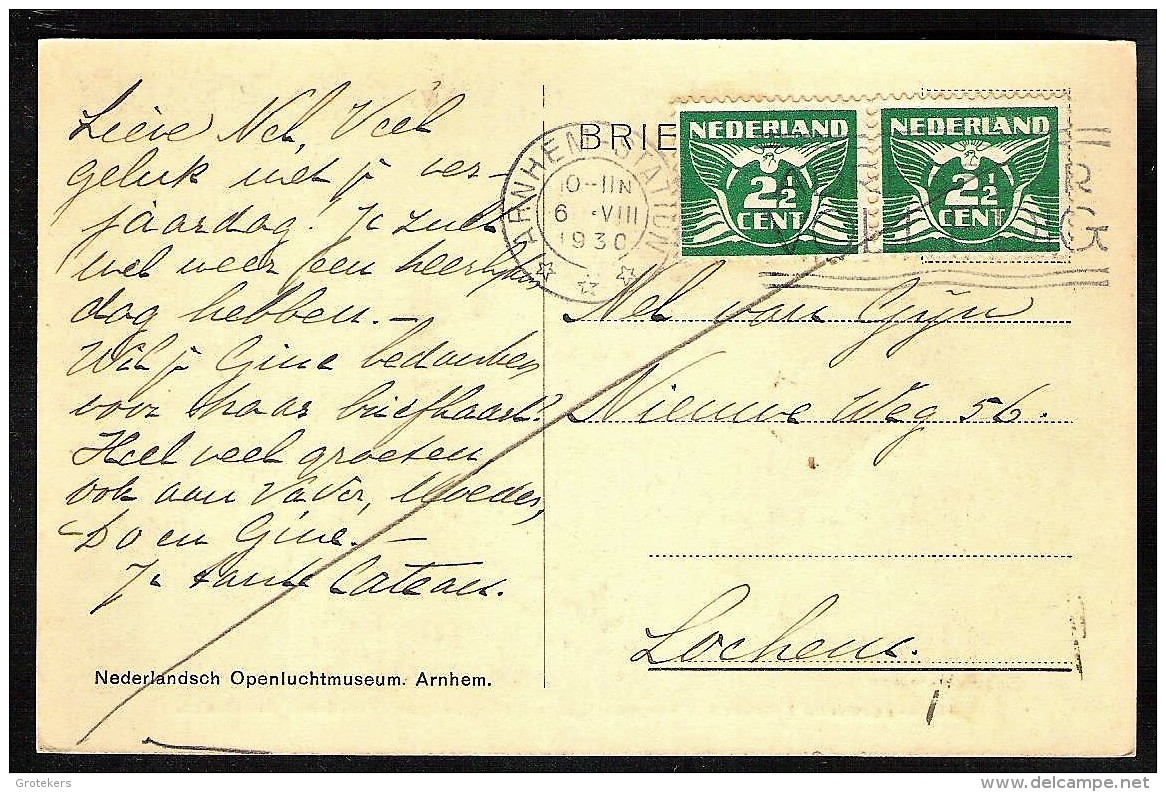 Lieve Nel, Veel
geluk met je ver-
jaardag. Je zult
wel weer een heerlijke
dag hebben.-
Wil je Gine bedanken
voor haar briefkaart?
Heel veel groeten
ook aan Vader, Moeder,
Do en Gine.-
Je tante Cateau.
Nederlandsch Openluchtmuseum. Arnhem.
BRIE
ARNHEM-STATION
10-11N
6 -VIII
1930
NEDERLAND
2½
CENT
NEDERLAND
2½
CENT
Nel van Gijn
Nieuwe Weg 56.
Lochem.
Grotekers
delcampe.net